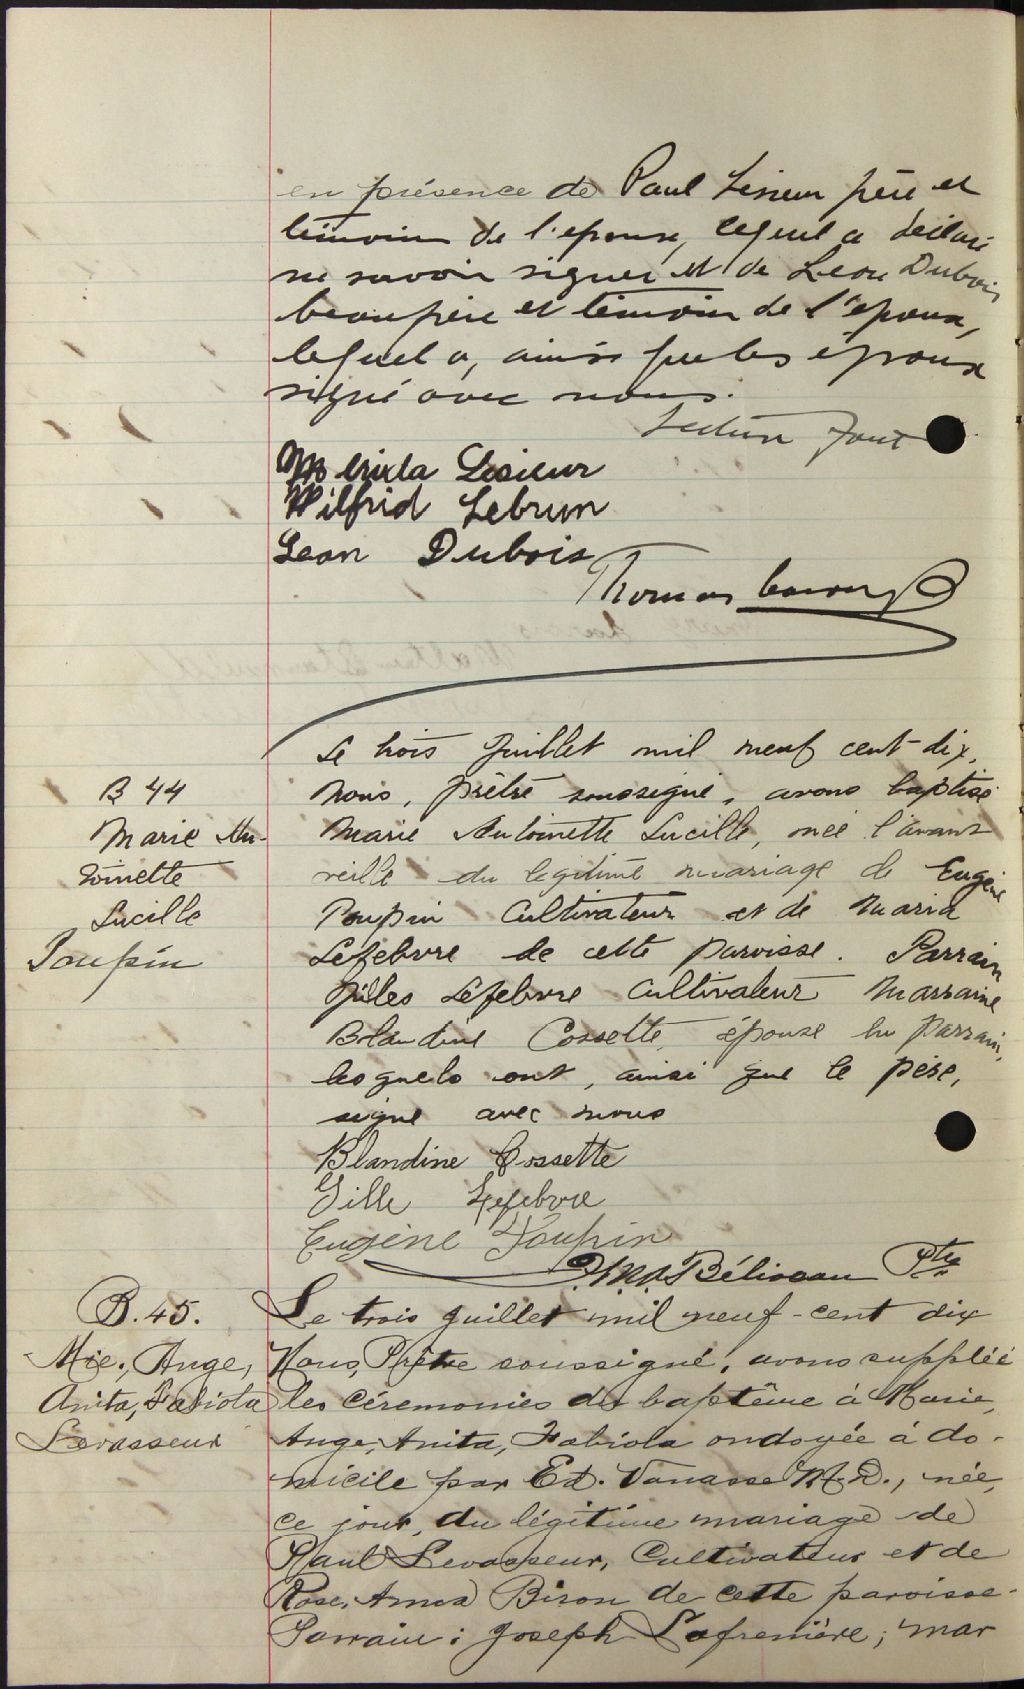 en présence de Paul Lesieur père et
témoin de l'epouse, lequel a déclaré
ne savoir signer et de Leon Dubois
beau père et témoin de l'époux,
lequel a, ainsi que les époux
signé avec nous.
Lecture faite
Merilda Lesieur
Wilfrid Lebrun
Leon Dubois
Thomas Caron
B 44
Marie An-
toinette
Lucille
Poupin
Le trois Juillet mil neuf cent-dix,
Nous, prêtre soussigné, avons baptisé
Marie Antoinette Lucille, née l'avant
veille du legitime mariage de Eugène
Poupin Cultivateur et de Maria
Lefebvre de cette paroisse. Parrain
Gilles Léfebvre Cultivateur Marraine
Blandine Cossette, épouse du parrain,
lesquels ont, ainsi que le père,
signé avec nous
Blandine Cossette
Gille Lefebvre
Eugène Poupin
Béliveau Ptre
B. 45.
Mie, Ange,
Anita, Fabiola
Levasseur
Le trois juillet mil neuf-cent dix
Nous, Prêtre soussigné, avons supplée
les cérémonies du baptême à Marie,
Ange, Anita, Fabiola ondoyée à do-
micile par Ed. Vanasse M.D., née,
ce jour, du légitime mariage de
Paul Levasseur, Cultivateur et de
Rose, Anna Biron de cette paroisse.
Parrain: Joseph Lafrenière; mar